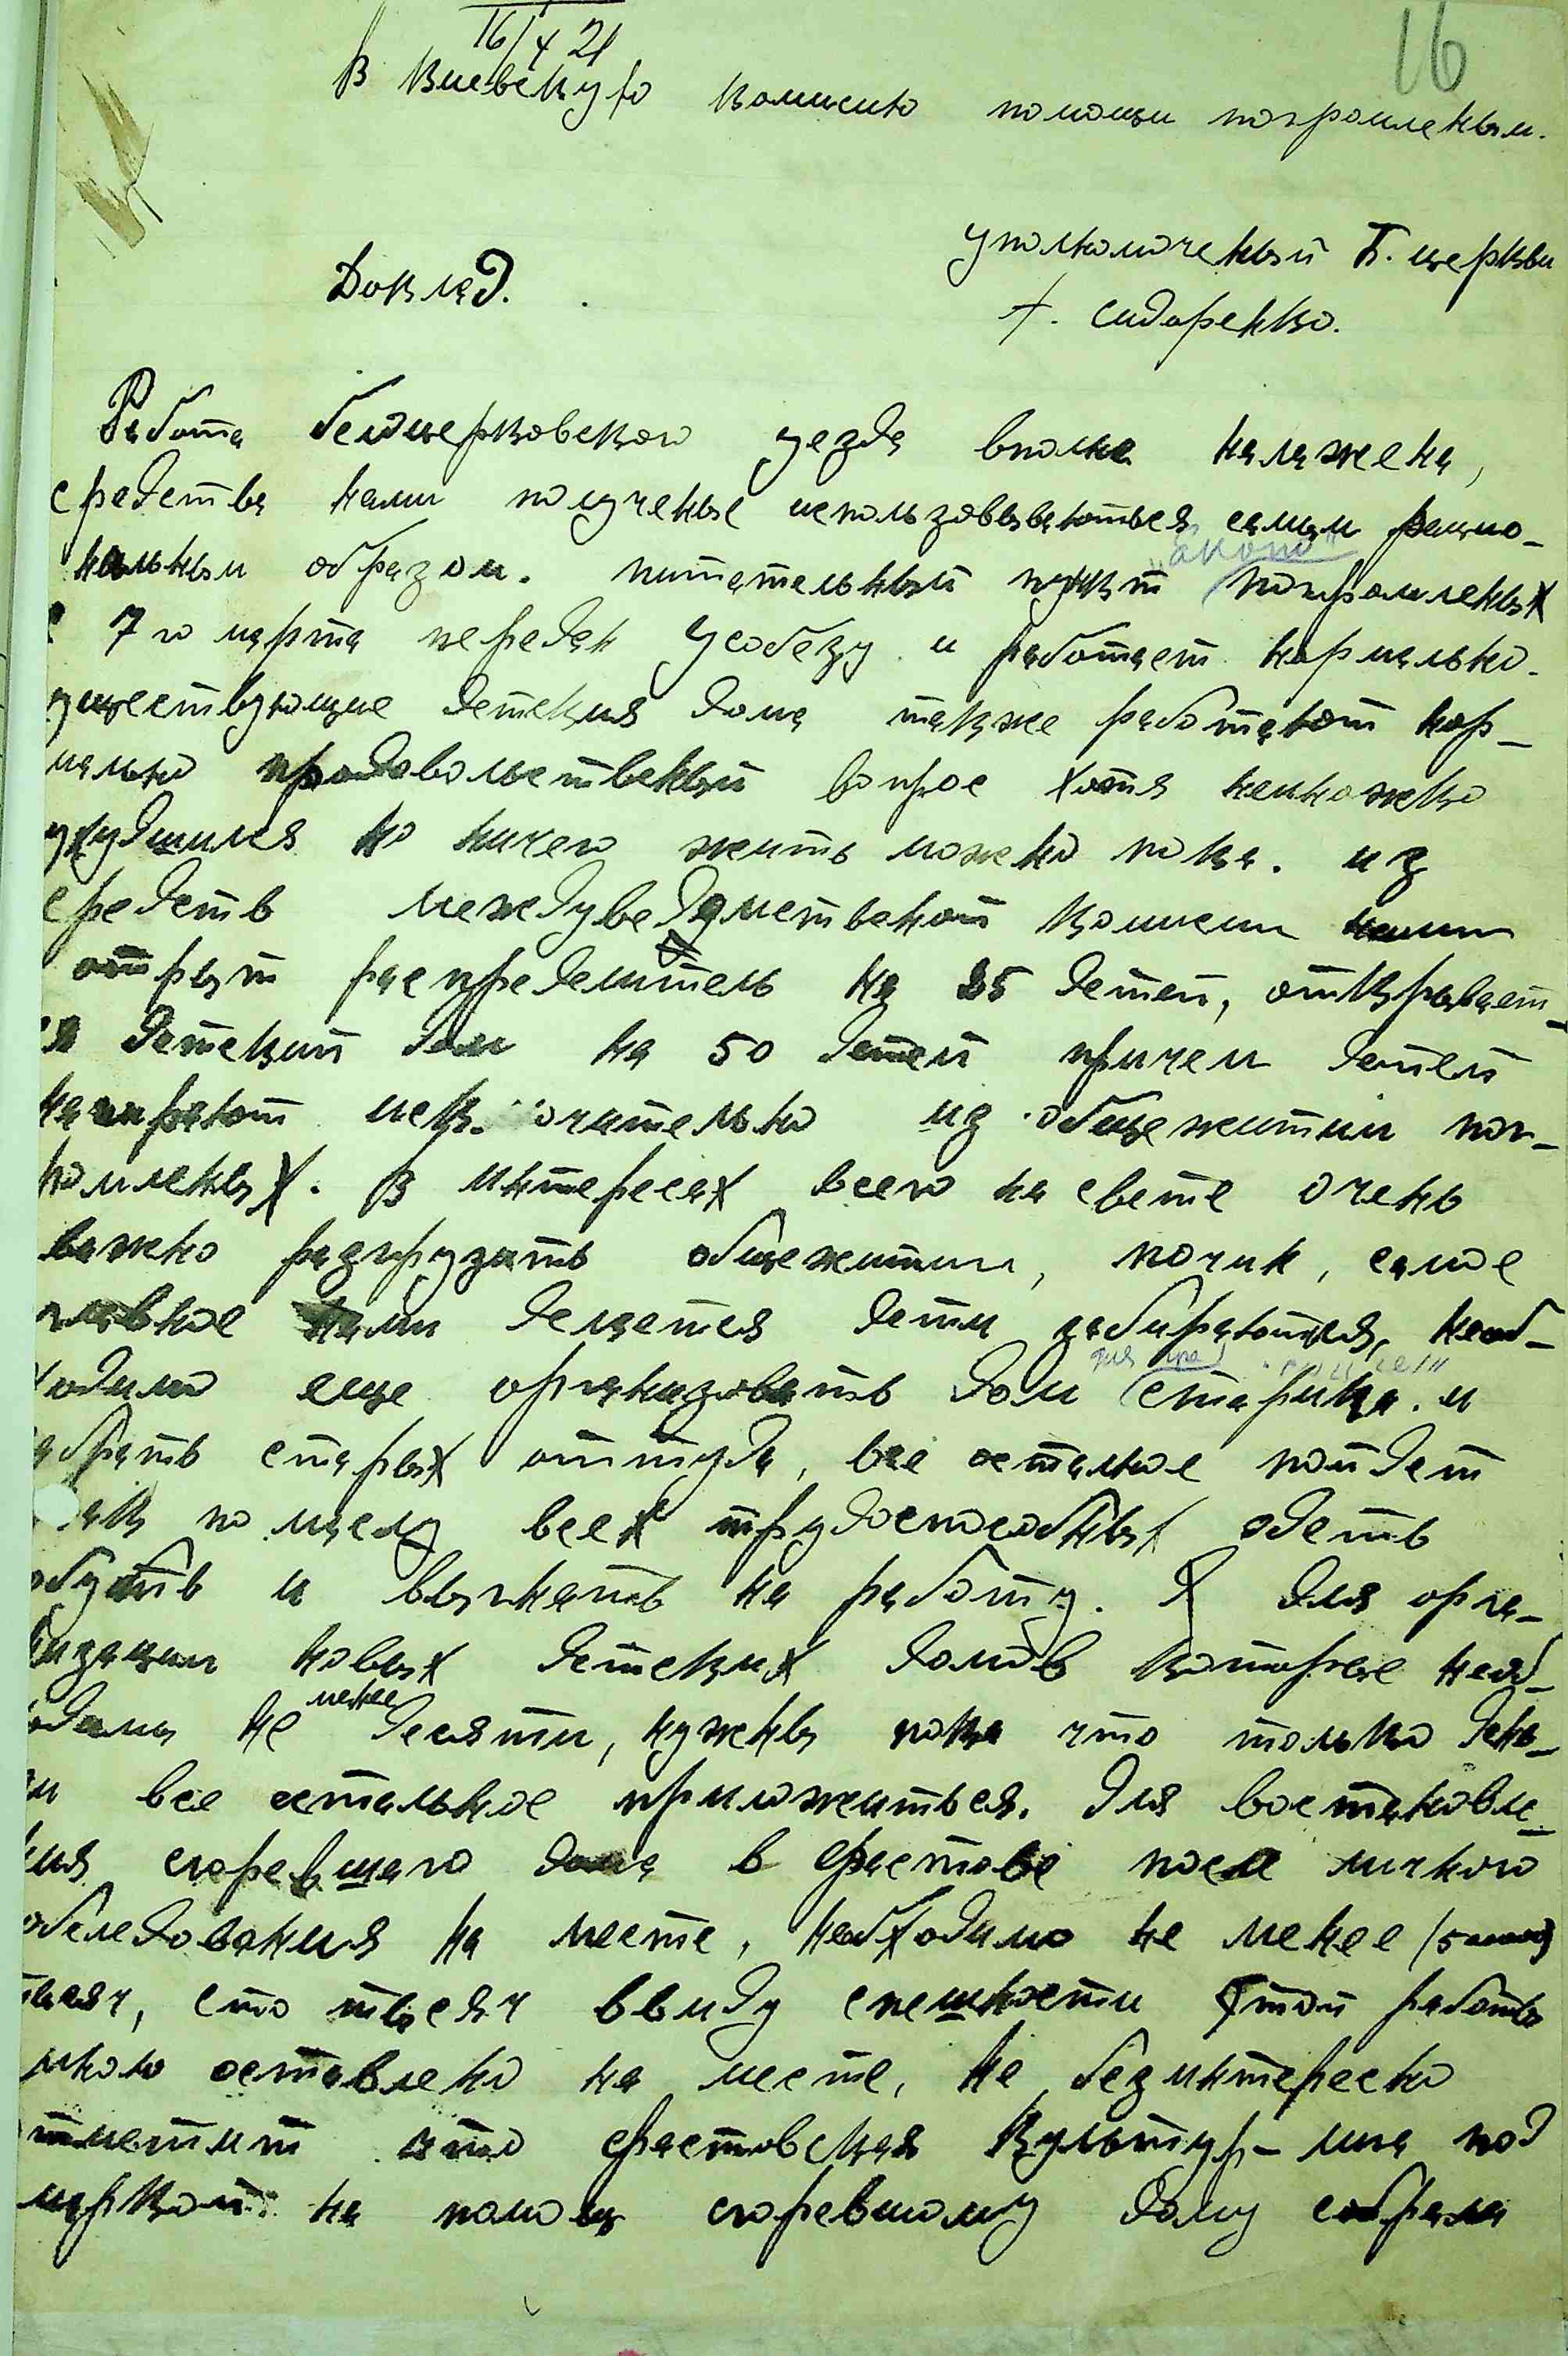 16/X 21
16
В Киевскую комисию помощи погромленым.
уполномоченый Б. церкви
Доклад.
т. Сидоренко.
Работа белоцерковского уезда вполне налажена,
средства нами полученые использовываються самым рацио-
нальным образом. питательный пункт погромленых
7го марта передан Усобезу и работает нормально.
уществующие детския дома также работают нор-
мально продовольственый вопрос хотя немножко
ухудшился но ничего жить можно пока. из
средств междуведомственой комисии нами
открыт распределитель на 35 детей, открывает-
ся детский дом на 50 детей причем детей
набирают иск. очительно из общежитий пог-
ромленых. В интересах всего на свете очень
важно разгрузить общежитии, почин, самое
главное нами делается дети забираются, необ-
ходимо еще организовать дом старика. и
забрать старых оттуда, все остальное пойдет
так по маслу всех трудоспособных одеть
обуть и выгнать на работу. Я для орга-
низации новых детских домов которые необ-
ходимы не менее десяти, нужны пока что только день-
ги все остальное приложиться. Для востановле-
ния сгоревшаго дома в фастове после личного
обследования на месте, необходимо не менее
тысяч, сто тысяч ввиду спешности этой работы
мною оставлено на месте, не безинтересно
тметит что фастовская Культур-лига под
маркой на помощ сгоревшому дому собрала